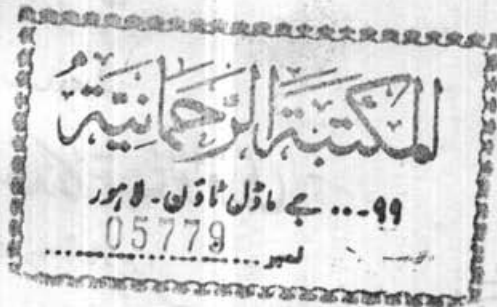 المكتبة الرحمانية
۹۹... جے ماڈل ٹاؤن - لاہور
نمبر 05779